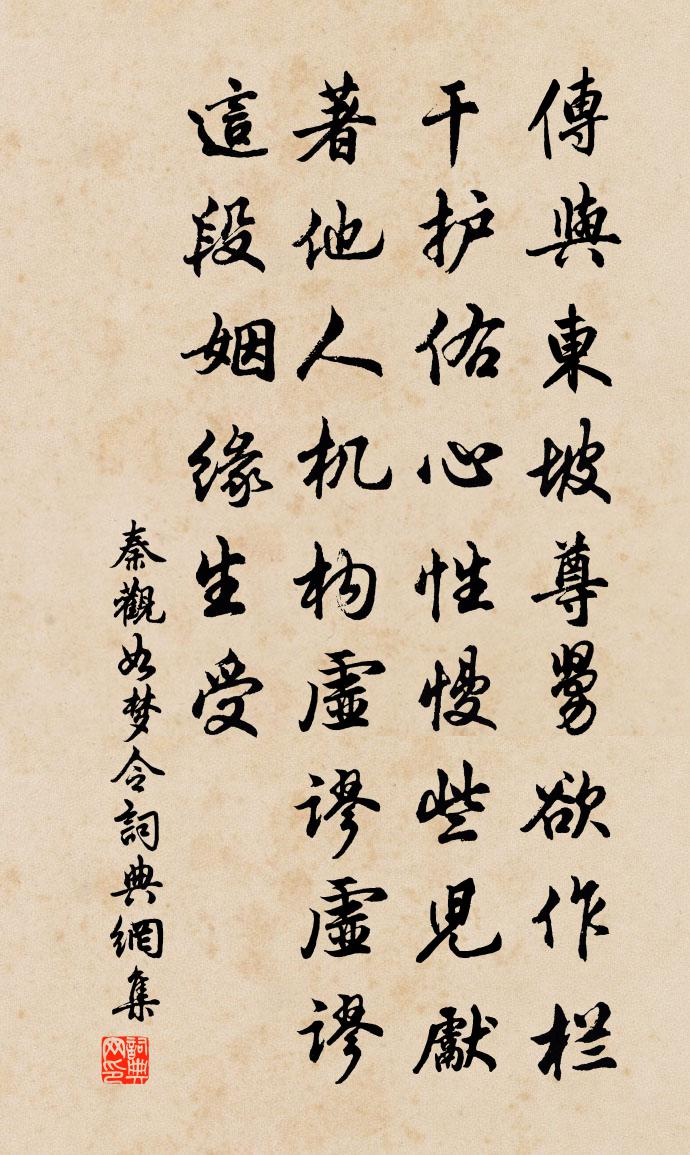 傳與東坡尊舅欲作栏
干护佑心性慢些兒獻
著他人机构虛謬虛謬
這段姻緣生受
秦觀如梦令詞典網集
詞典网印